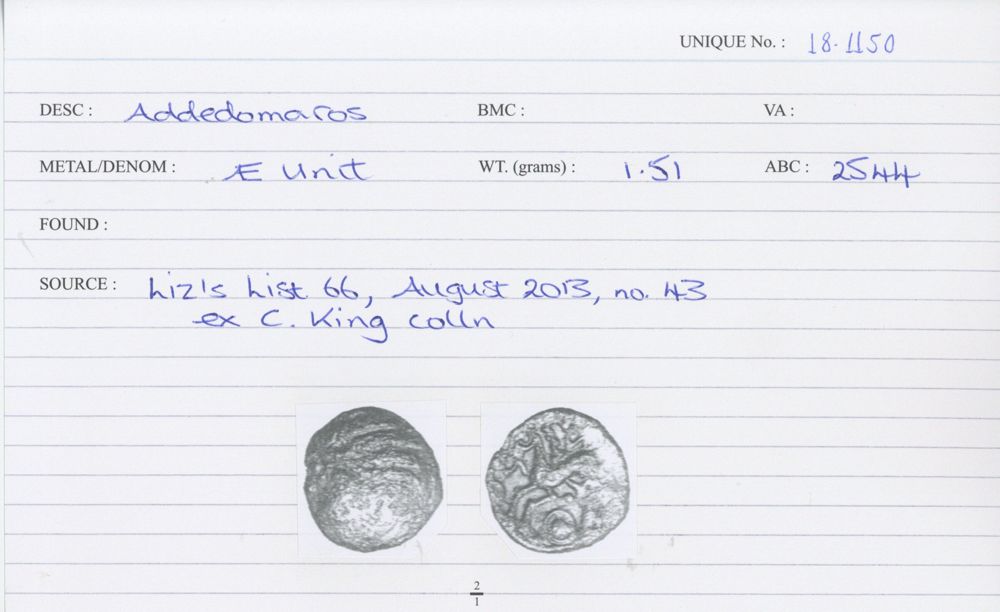 UNIQUE No. : 18.1150
DESC : Addedomaros BMC : VA :
METAL/DENOM : Æ Unit WT. (grams) : 1.51 ABC : 2544
FOUND :
SOURCE : Liz's List 66, August 2013, no. 43
ex C. King colln
2
1